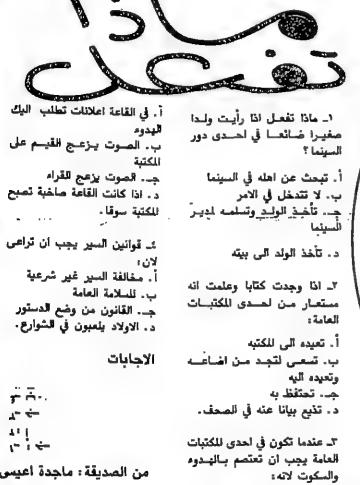 ماذا
تفعل
١ـ ماذا تفعل اذا رأيت ولدا
صغيرا ضائعا في احدى دور
السينما ؟
أ. تبحث عن اهله في السينما
ب. لا تتدخل في الامر
جـ. تأخذ الولد وتسلمه لمدير
السينما
د. تأخذ الولد الى بيته
٢ـ اذا وجدت كتابا وعلمت انه
مستعار من احدى المكتبات
العامة :
أ. تعيده الى المكتبه
ب. تسعى لتجد من اضاعه
وتعيده اليه
جـ. تحتفظ به
د. تذيع بيانا عنه في الصحف.
٣ـ عندما تكون في احدى المكتبات
العامة يجب ان تعتصم بالهدوء
والسكوت لانه :
أ. في القاعة اعلانات تطلب اليك
الهدوء
ب. الصوت يزعج القيم على
المكتبة
جـ. الصوت يزعج القراء
د. اذا كانت القاعة صاخبة تصبح
المكتبة سوقا.
٤ـ قوانين السير يجب ان تراعى
لان :
أ. مخالفة السير غير شرعية
ب. للسلامة العامة
جـ. القانون من وضع الدستور
د. الاولاد يلعبون في الشوارع.
الاجابات
من الصديقة : ماجدة اعيسى